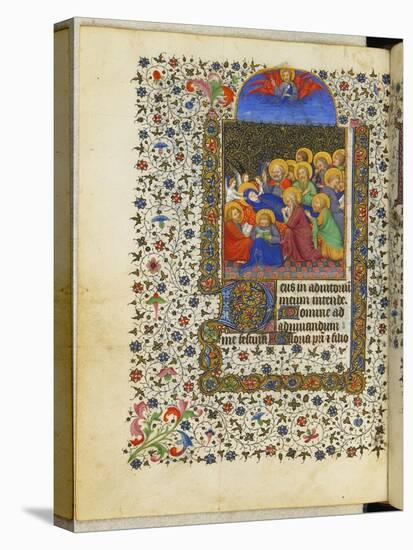 Deus in adiutoriu
meum intende
Domine ad
adiuuandum
me festina Gloria pri ⁊ filio